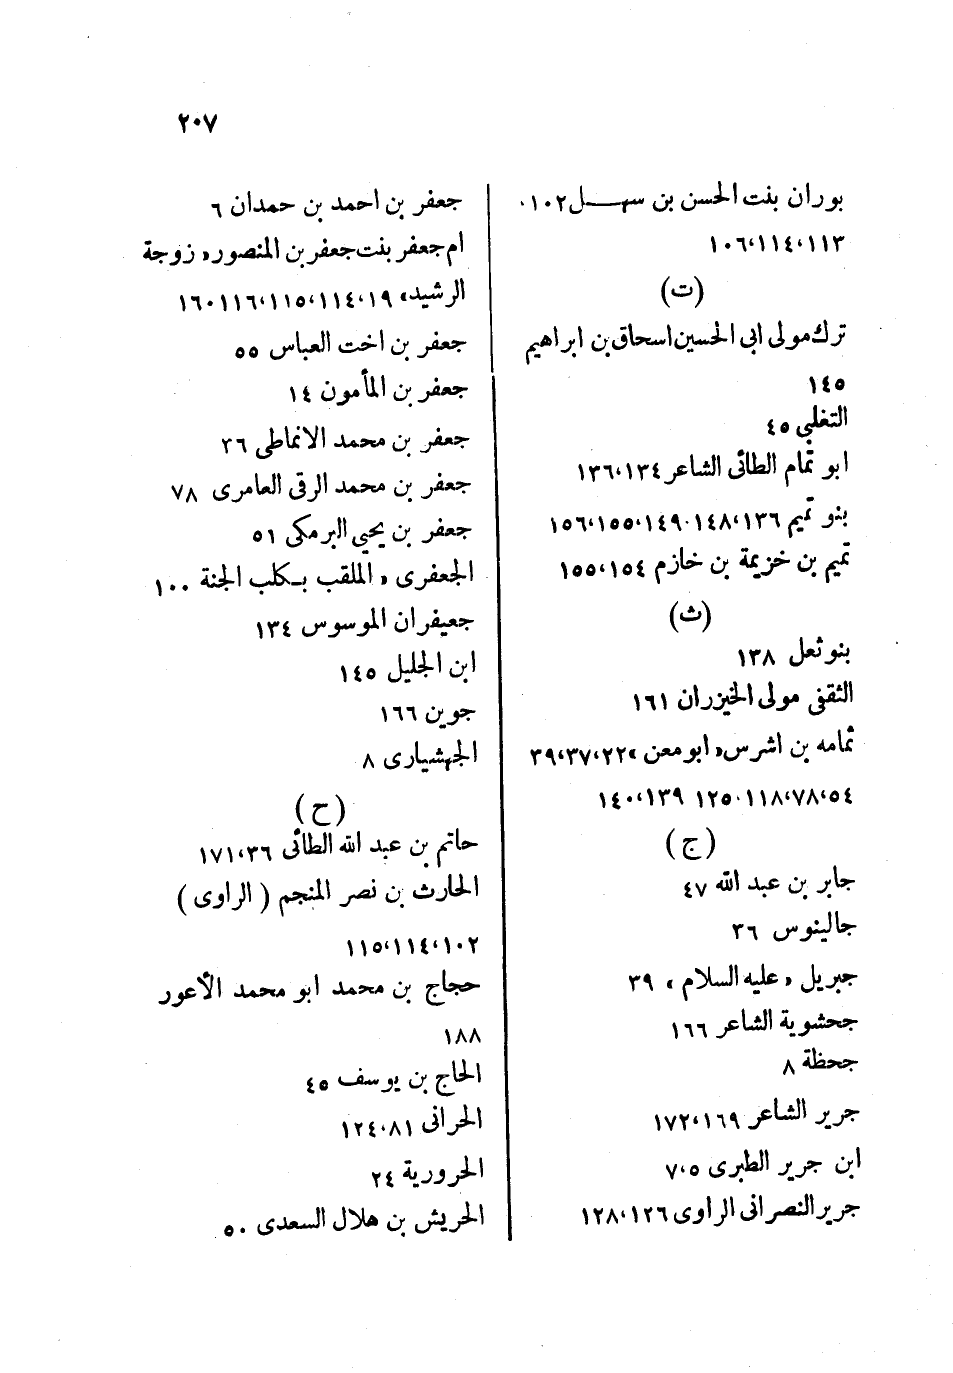 ٢٠٧
بوران بنت الحسن بن سهـــل ١٠٢،
١٠٦،١١٤،١١٣
(ت)
ترك مولى ابى الحسين اسحاق بن ابراهيم
١٤٥
التغلبى ٤٥
ابو تمام الطائى الشاعر ١٣٦،١٣٤
بنو تميم ١٥٦،١٥٥،١٤٩،١٤٨،١٣٦
تميم بن خزيمة بن خازم ١٥٥،١٥٤
(ث)
بنو ثعل ١٣٨
الثقفى مولى الخيزران ١٦١
ثمامه بن اشرس «ابو معن» ٣٩،٣٧،٢٢
١٤٠،١٣٩ ١٢٥،١١٨،٧٨،٥٤
(ج)
جابر بن عبد الله ٤٧
جالينوس ٣٦
جبريل «عليه السلام» ٣٩
جحشوية الشاعر ١٦٦
جحظة ٨
جرير الشاعر ١٧٢،١٦٩
ابن جرير الطبرى ٧،٥
جرير النصرانى الراوى ١٢٨،١٢٦
جعفر بن احمد بن حمدان ٦
ام جعفر بنت جعفر بن المنصور «زوجة
الرشيد» ١٦٠،١١٦،١١٥،١١٤،١٩
جعفر بن اخت العباس ٥٥
جعفر بن المأمون ١٤
جعفر بن محمد الانماطى ٢٦
جعفر بن محمد الرقى العامرى ٧٨
جعفر بن يحيى البرمكى ٥١
الجعفرى «الملقب بـكلب الجنة ١٠٠
جعيفران الموسوس ١٣٤
ابن الجليل ١٤٥
جوين ١٦٦
الجهشيارى ٨
(ح)
حاتم بن عبد الله الطائى ١٧١،٣٦
الحارث بن نصر المنجم (الراوى)
١١٥،١١٤،١٠٢
حجاج بن محمد ابو محمد الأعور
١٨٨
الحاج بن يوسف ٤٥
الحرانى ١٢٤،٨١
الحرورية ٢٤
الحريش بن هلال السعدى ٥٠